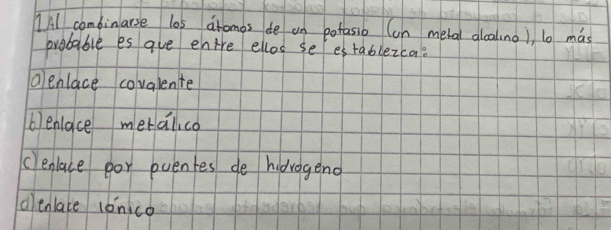 1. Al combinarse los átomos de un potasio (un metal alcalino), lo más
probable es que entre ellos se establezca:
a) enlace covalente
b) enlace metálico
c) enlace por puentes de hidrogeno
d) enlace iónico